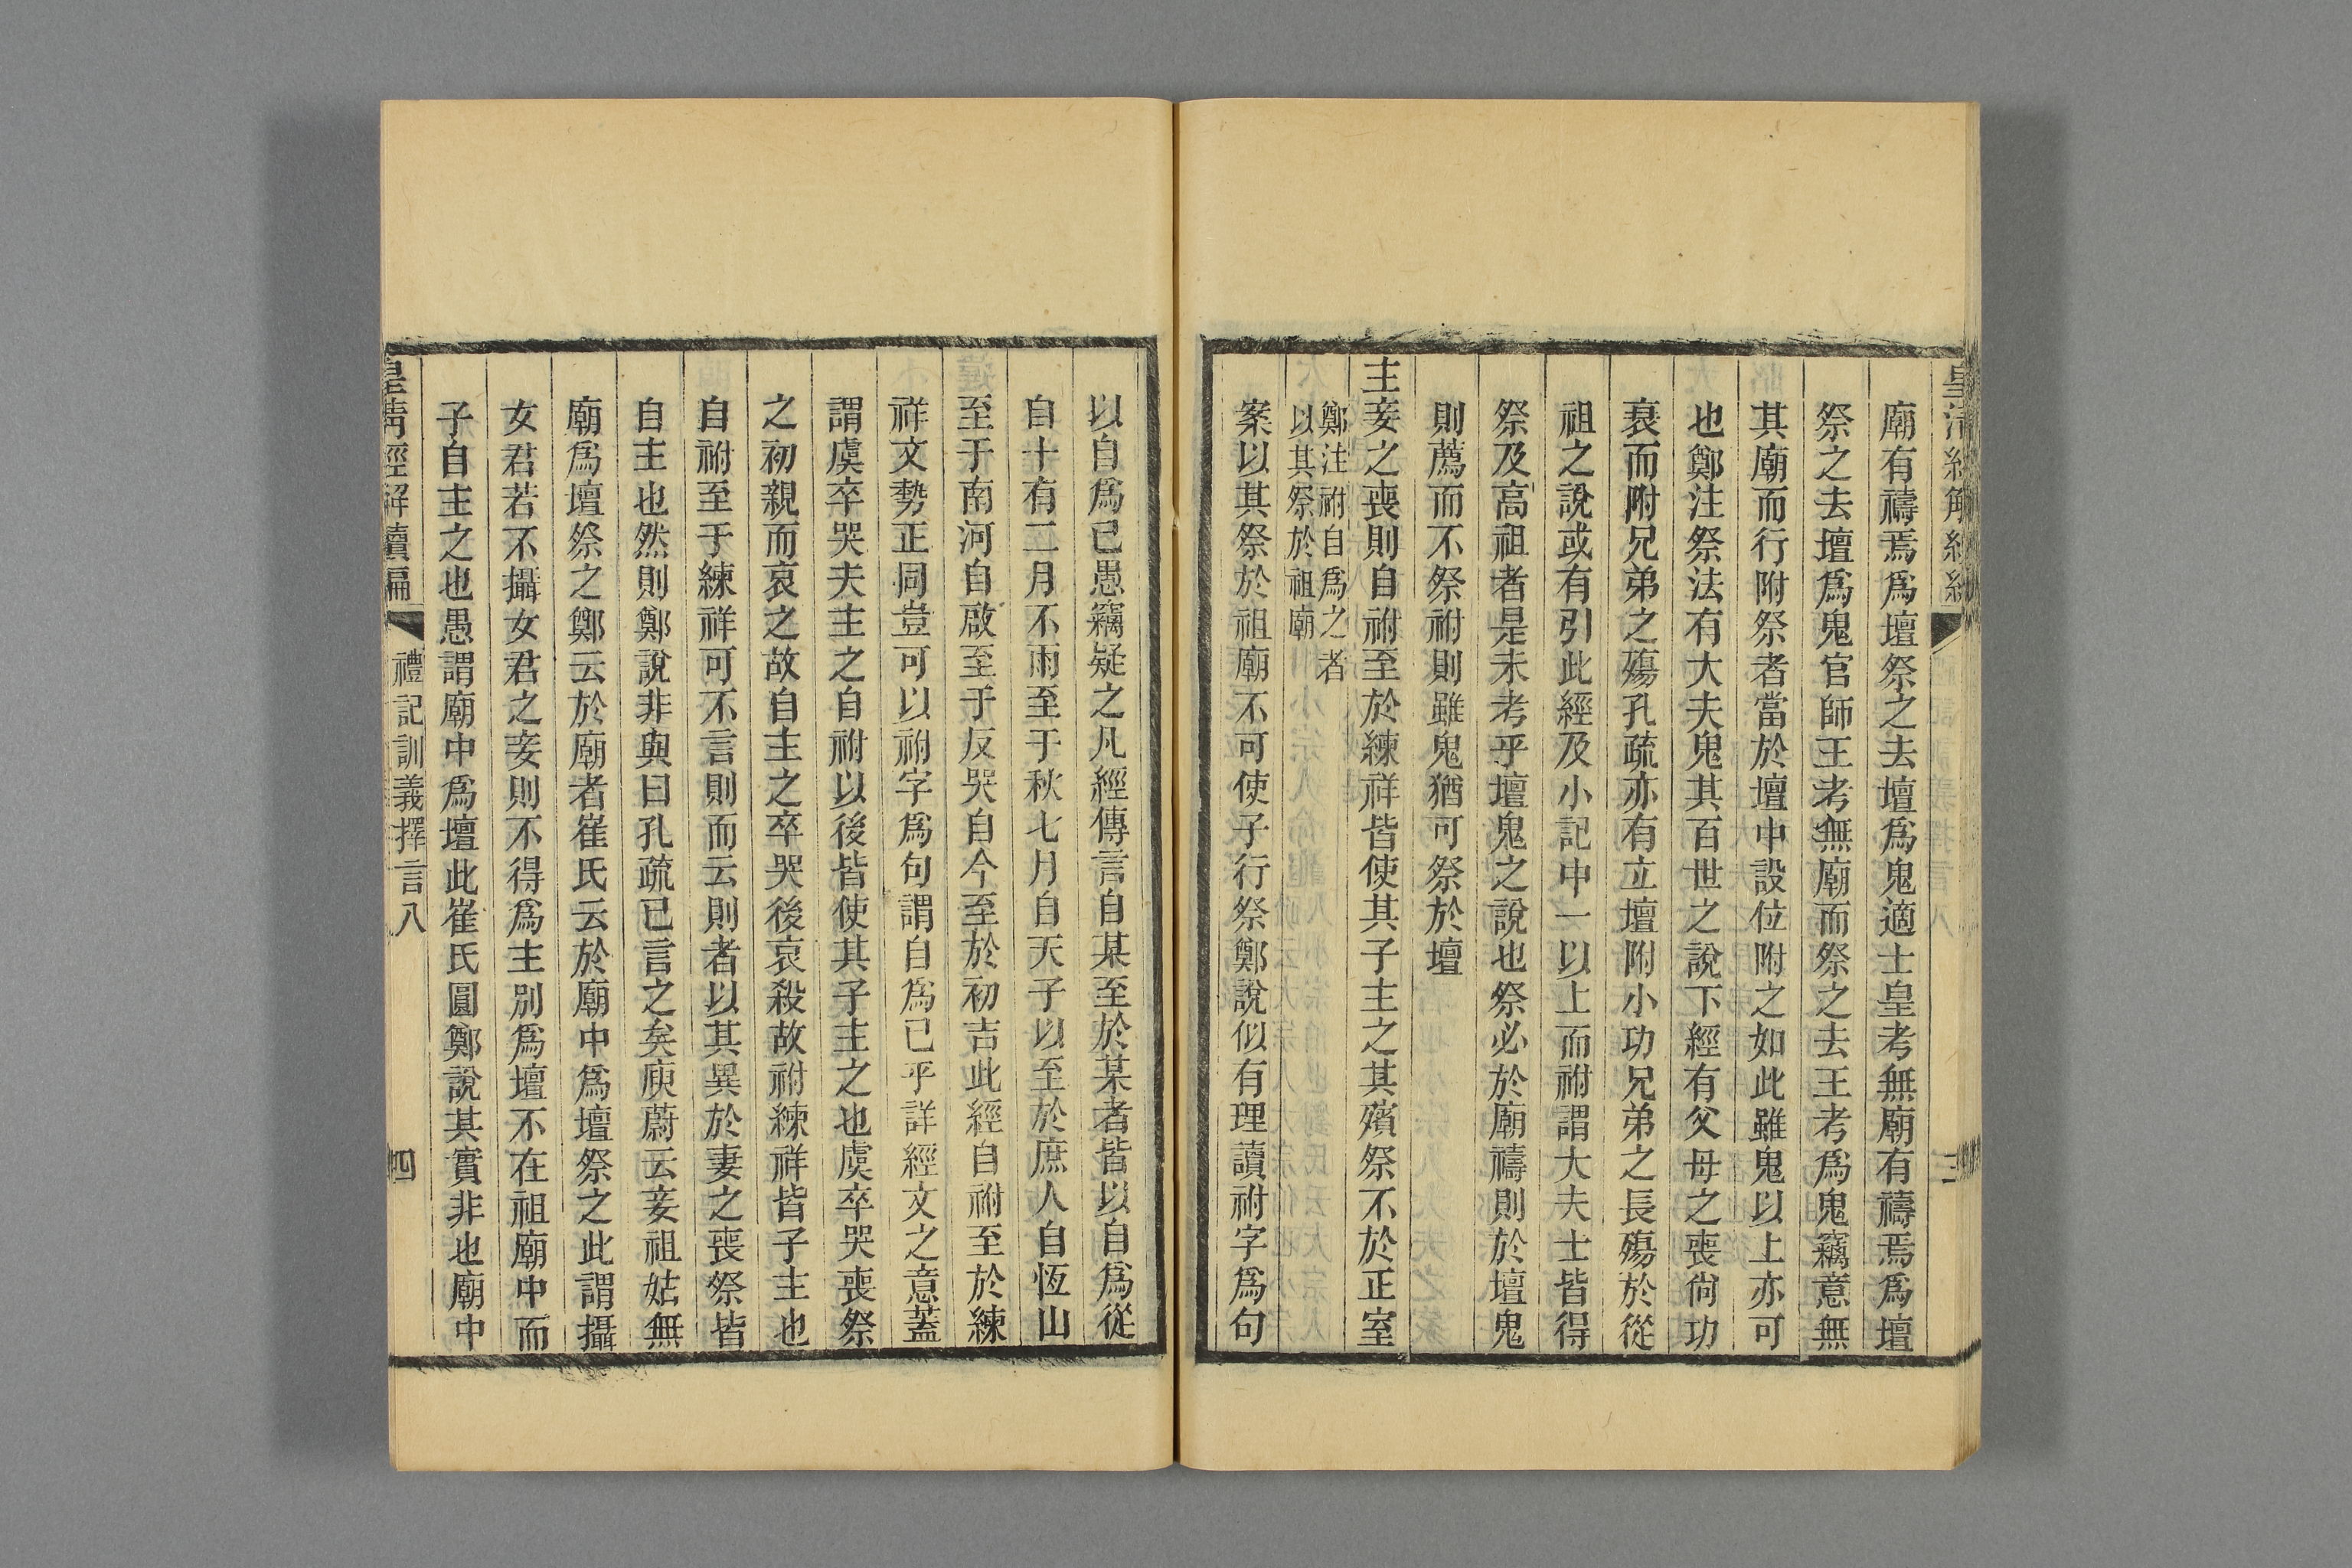 廟有禱焉爲壇祭之去壇爲鬼適士皇考無廟有禱焉爲壇
祭之去壇爲鬼官師王考無廟而祭之去王考爲鬼竊意無
其廟而行附祭者當於壇中設位附之如此雖鬼以上亦可
也鄭注祭法有大夫鬼其百世之說下經有父母之喪尙功
衰而附兄弟之殤孔疏亦有立壇附小功兄弟之長殤於從
祖之說或有引此經及小記中一以上而祔謂大夫士皆得
祭及高祖者是未考乎壇鬼之說也祭必於廟禱則於壇鬼
則薦而不祭祔則雖鬼猶可祭於壇
主妾之喪則自祔至於練祥皆使其子主之其殯祭不於正室
鄭注祔自爲之者
以其祭於祖廟
案以其祭於祖廟不可使子行祭鄭說似有理讀祔字爲句
以自爲已愚竊疑之凡經傳言自某至於某者皆以自爲從
自十有二月不雨至于秋七月自天子以至於庶人自恆山
至于南河自啟至于反哭自今至於初吉此經自祔至於練
祥文勢正同豈可以祔字爲句謂自爲已乎詳經文之意蓋
謂虞卒哭夫主之自祔以後皆使其子主之也虞卒哭喪祭
之初親而哀之故自主之卒哭後哀殺故祔練祥皆子主也
自祔至于練祥可不言則而云則者以其異於妻之喪祭皆
自主也然則鄭說非與曰孔疏已言之矣庾蔚云妾祖姑無
廟爲壇祭之鄭云於廟者崔氏云於廟中爲壇祭之此謂攝
女君若不攝女君之妾則不得爲主別爲壇不在祖廟中而
子自主之也愚謂廟中爲壇此崔氏圓鄭說其實非也廟中
皇清經解續編
禮記訓義擇言八
四